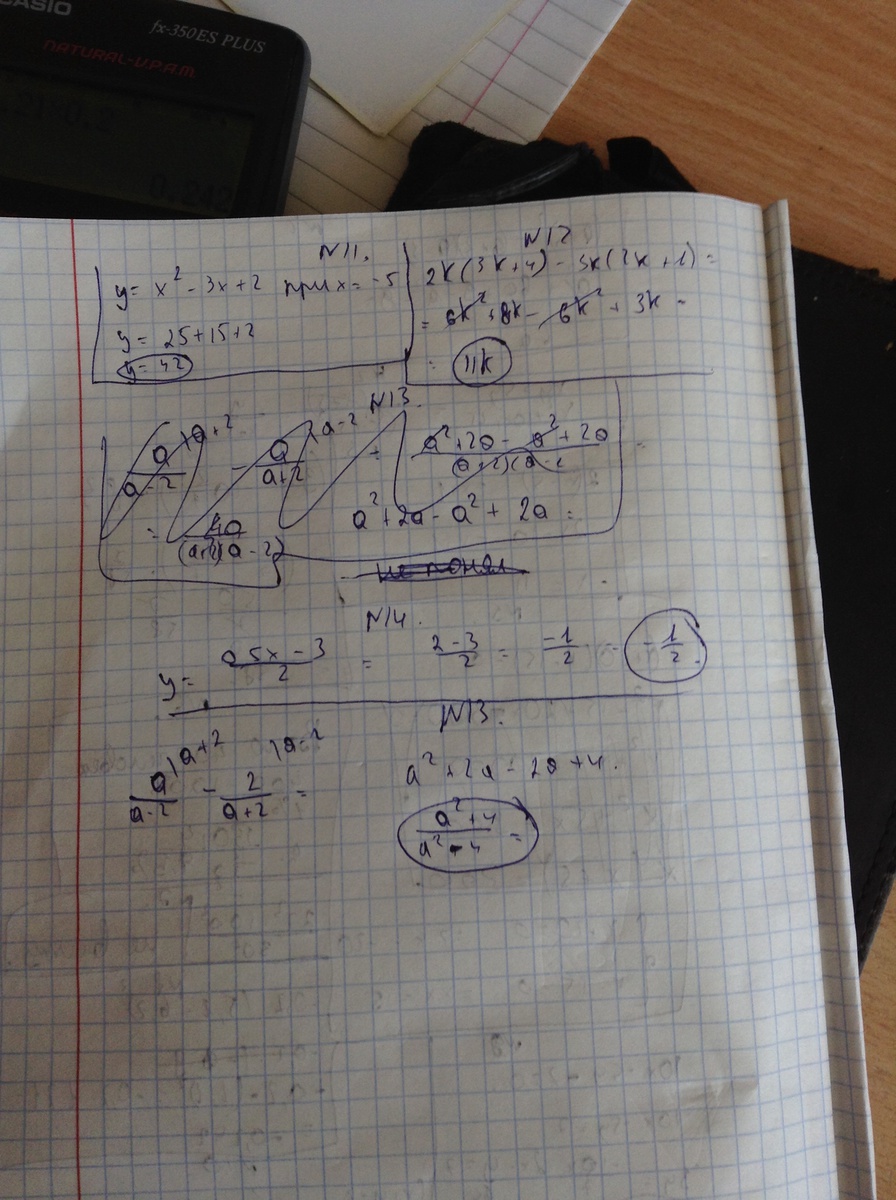 CASIO
fx-350ES PLUS
NATURAL-V.P.A.M.
N11.
y = x² - 3x + 2 при x = -5
y = 25 + 15 + 2
y = 42
N12
2k(3k+4) - 3k(2k+1) =
= 6k² + 8k - 6k² + 3k =
= 11k
N13.
a/(a-2) \a+2 - a/(a+2) \a-2 = (a² + 2a - a² + 2a)/((a+2)(a-2)) =
= 4a/((a+2)(a-2))
a² + 2a - a² + 2a =
не понял
N14.
y = (0,5x - 3)/2 = (2-3)/2 = -1/2 = -1/2
N13.
a/(a-2) \a+2 - 2/(a+2) \a-2 =
a² + 2a - 2a + 4.
(a² + 4)/(a² - 4) =